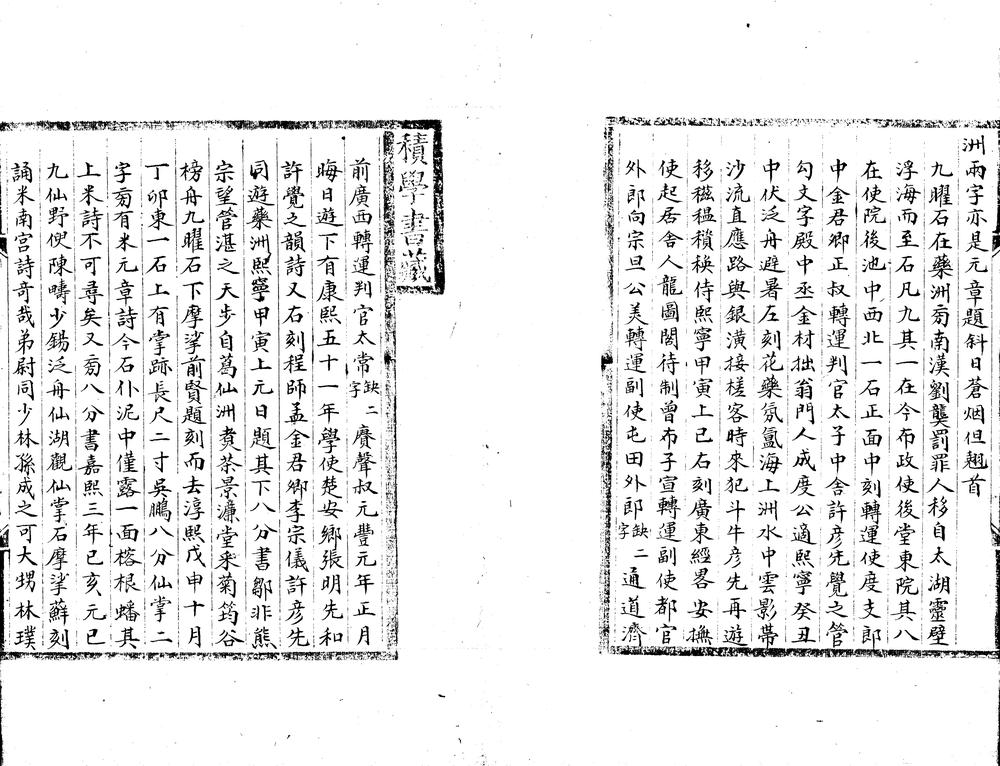 洲兩字亦是元章題斜日蒼烟但翹首
九曜石在藥洲旁南漢劉龑罰罪人移自太湖靈壁
浮海而至石凡九其一在今布政使後堂東院其八
在使院後池中西北一石正面中刻轉運使度支郎
中金君卿正叔轉運判官太子中舍許彥先覺之管
勾文字殿中丞金材拙翁門人成度公適熙寧癸丑
中伏泛舟避暑左刻花藥氛氳海上洲水中雲影帶
沙流直應路與銀潢接槎客時來犯斗牛彥先再遊
移稵稳穳稬侍熙寧甲寅上巳右刻廣東經畧安撫
使起居舍人龍圖閣待制曾布子宣轉運副使都官
外郎向宗旦公美轉運副使屯田外郎缺二字通道濟
積學書藏
前廣西轉運判官太常缺二字賡聲叔元豐元年正月
晦日遊下有康熙五十一年學使楚安鄉張明先和
許覺之韻詩又石刻程師孟金君卿李宗儀許彥先
同遊藥洲熙寧甲寅上元日題其下八分書鄒非熊
宗望管湛之天步自葛仙洲煑茶景濂堂采菊筠谷
榜舟九曜石下摩挲前賢題刻而去淳熙戊申十月
丁卯東一石上有掌跡長尺二寸吳鵬八分仙掌二
字旁有米元章詩今石仆泥中僅露一面榕根蟠其
上米詩不可尋矣又旁八分書嘉熙三年已亥元巳
九仙野俠陳疇少錫泛舟仙湖觀仙掌石摩挲蘚刻
誦米南宫詩奇哉弟尉同少林孫成之可大甥林璞